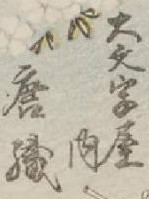 大文字屋
内
唐織